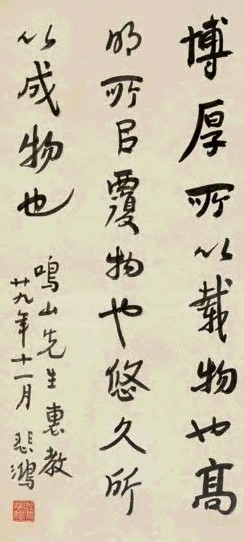 博厚所以载物也高
明所以覆物也悠久所
以成物也
鳴山先生惠教
廿九年十一月 悲鴻